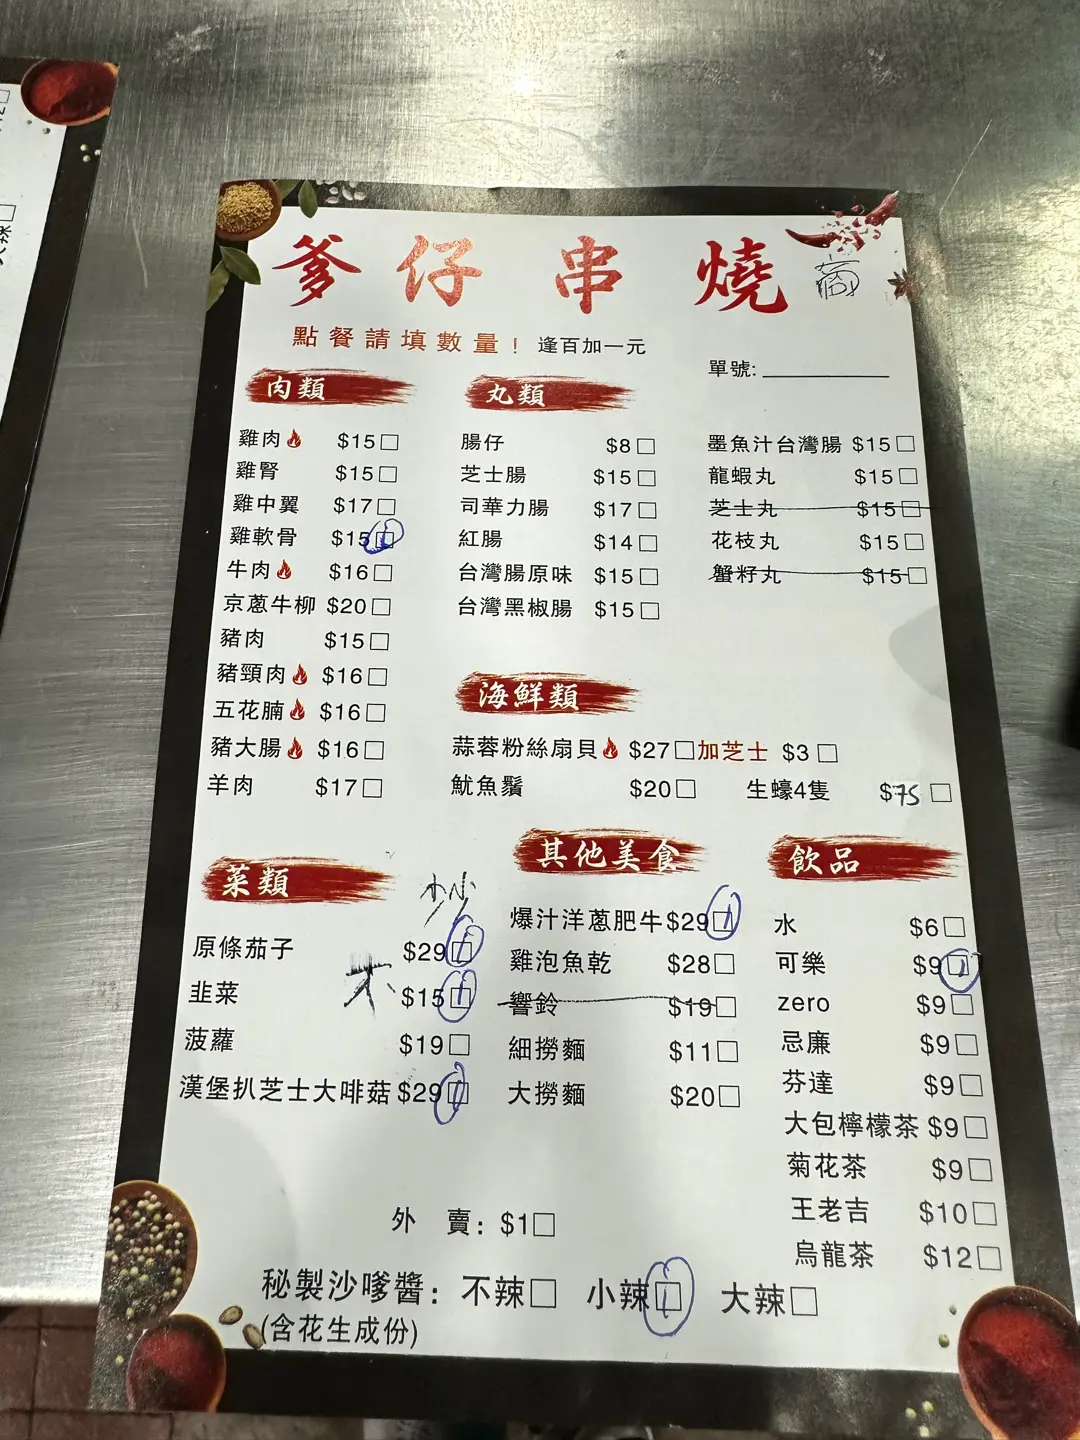 爹仔串燒
點餐請填數量! 逢百加一元
單號:
肉類
雞肉 $15
雞腎 $15
雞中翼 $17
雞軟骨 $15 1
牛肉 $16
京蔥牛柳 $20
豬肉 $15
豬頸肉 $16
五花腩 $16
豬大腸 $16
羊肉 $17
丸類
腸仔 $8
芝士腸 $15
司華力腸 $17
紅腸 $14
台灣腸原味 $15
台灣黑椒腸 $15
墨魚汁台灣腸 $15
龍蝦丸 $15
芝士丸 $15
花枝丸 $15
蟹籽丸 $15
海鮮類
蒜蓉粉絲扇貝 $27 加芝士 $3
魷魚鬚 $20
生蠔4隻 $75
菜類
原條茄子 $29 1
韭菜 $15 1
菠蘿 $19
漢堡扒芝士大啡菇 $29 1
其他美食
爆汁洋蔥肥牛 $29 1
雞泡魚乾 $28
響鈴 $19
細撈麵 $11
大撈麵 $20
飲品
水 $6
可樂 $9 1
zero $9
忌廉 $9
芬達 $9
大包檸檬茶 $9
菊花茶 $9
王老吉 $10
烏龍茶 $12
外 賣: $1
秘製沙嗲醬: 不辣 小辣 1 大辣
(含花生成份)